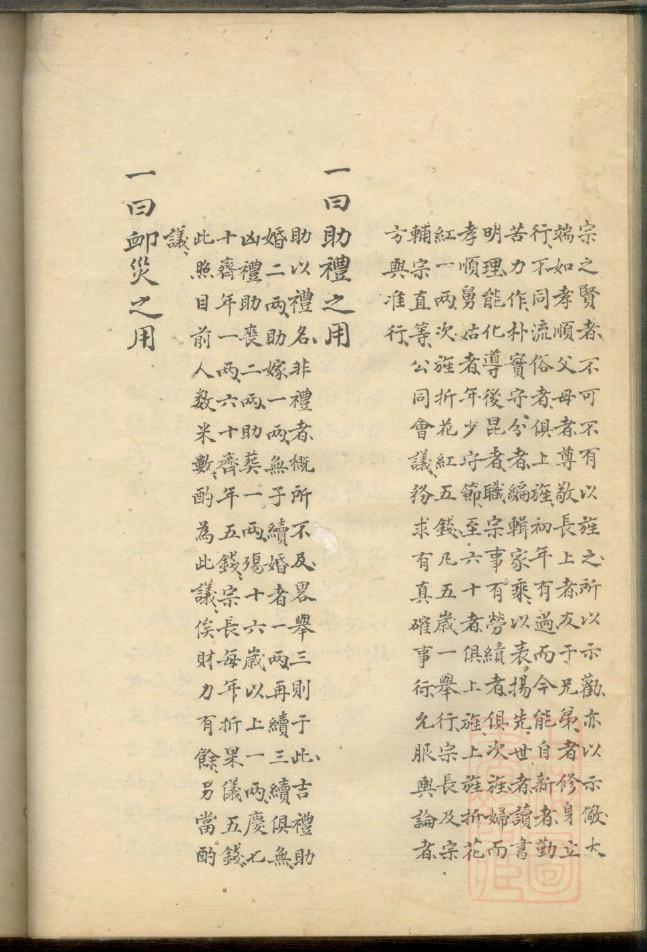 宗之賢者、不可不有以旌之、所以示勸、亦以示儆、大
端如孝順父母者、尊敬長上者、友于兄弟者、修身立
行、不同流俗者、俱上旌、初年有過而今能自新者、勤
苦力作、朴實守分者、編輯家乘、以表揚先世者、讀書
明理、能化導後昆者、職宗事有勞績者、俱次旌、婦而
孝順舅姑者、年少守節、至六十者、俱上旌、上旌折花
紅一兩、次旌折花紅五錢、凡五歲一舉行、宗長及宗
輔宗直等、公同會議、務求有真確事行、允服輿論者、
方與准行、
一曰助禮之用
助以禮名、非禮者、概所不及、畧舉三則于此、吉禮助
婚二兩、助嫁一兩、無子續婚者一兩、再續三續俱無、
凶禮助喪二兩、助葬一兩、殤十六歲以上一兩、慶七
十齊年一兩、六十齊年五錢、宗長每年折果儀五錢、
此照目前人数米數、酌為此議、俟財力有餘、另當酌
議、
一曰卹災之用